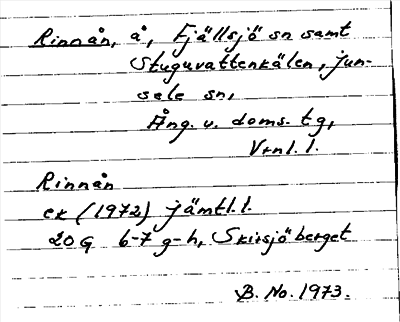 Rinnån, å, Fjällsjö sn samt
Stuguvattenkälen, Jun-
sele sn,
Ång. v. doms. tg,
Vrnl. l.
Rinnån
ek (1972) jämtl. l.
20G 6-7 g-h, Skirsjöberget
B. No. 1973.